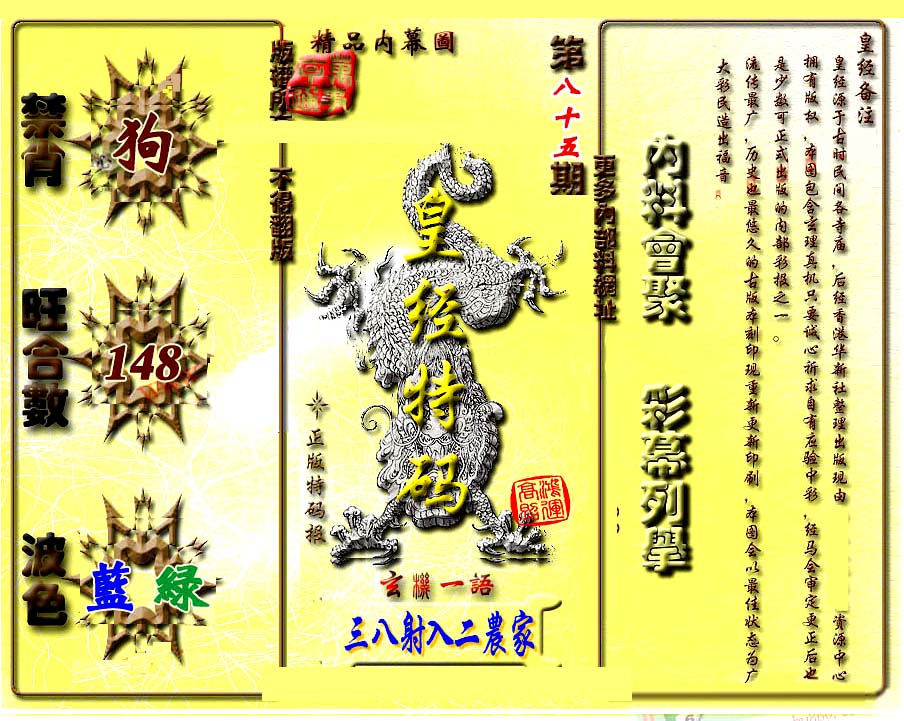 精品内幕圖
版權所
不得翻版
第八十五期
更多内部料網址
禁肖
狗
旺合數
148
波色
藍 綠
皇经特码
正版特码报
鴻運高照
玄機一語
三八射入二農家
内料會聚
彩幕列學
皇经备注
皇经源于古时民间各寺庙，后经香港华新社整理出版现由
资源中心
拥有版权，本图包含玄理真机只要诚心祈求自有应验中彩，经马会审定更正后也
是少数可正式出版的内部彩报之一。
流传最广，历史也最悠久的古版本刻印现重新更新印刷，本图会以最佳状态为广
大彩民造出福音